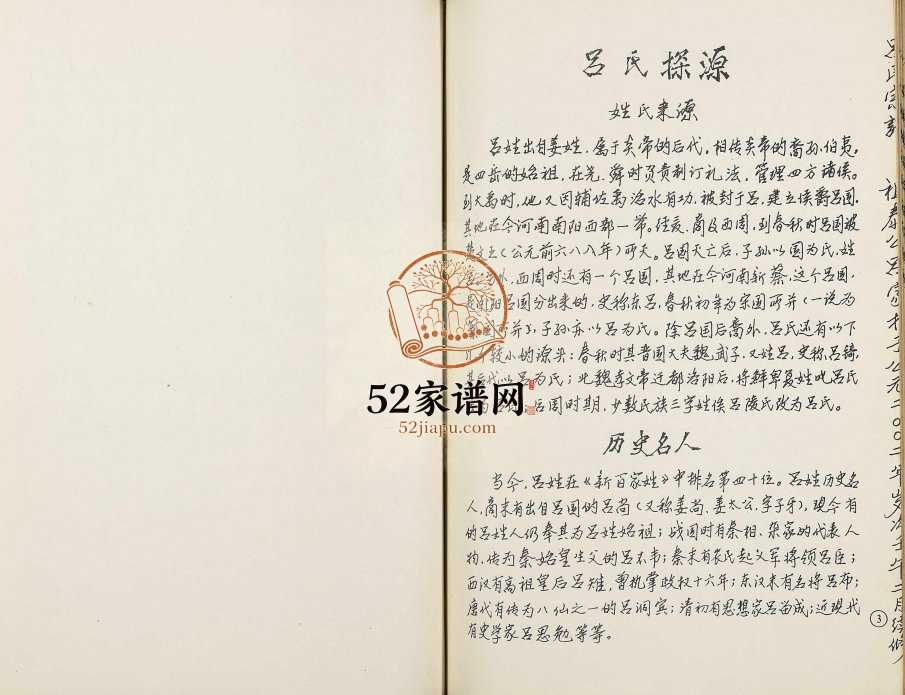 吕氏探源
姓氏来源
吕姓出自姜姓，属于炎帝的后代。相传炎帝的裔孙伯夷，
是四岳的始祖，在尧、舜时负责制订礼法，管理四方诸侯。
到大禹时，他又因辅佐禹治水有功，被封于吕，建立侯爵吕国，
其地在今河南南阳西部一带。经夏、商及西周，到春秋时吕国被
楚文王（公元前六八八年）所灭。吕国灭亡后，子孙以国为氏，姓
外，西周时还有一个吕国，其地在今河南新蔡，这个吕国
是南阳吕国分出来的，史称东吕，春秋初年为宋国所并（一说为
蔡国所并），子孙亦以吕为氏。除吕国后裔外，吕氏还有以下
几个较小的源头：春秋时其晋国大夫魏武子，又姓吕，史称吕锜，
其后代以吕为氏；北魏孝文帝迁都洛阳后，将鲜卑复姓叱吕氏
后周时期，少数民族三字姓俟吕陵氏改为吕氏。
历史名人
当今，吕姓在《新百家姓》中排名第四十位。吕姓历史名
人，商末有出自吕国的吕尚（又称姜尚、姜太公，字子牙），现今有
的吕姓人仍奉其为吕姓始祖；战国时有秦相、杂家的代表人
物、传为秦始皇生父的吕不韦；秦末有农民起义军将领吕臣；
西汉有高祖皇后吕雉，曾执掌政权十六年；东汉末有名将吕布；
唐代有传为八仙之一的吕洞宾；清初有思想家吕留成；近现代
有史学家吕思勉等等。
吕氏宗谱
3
52家谱网
52jiapu.com